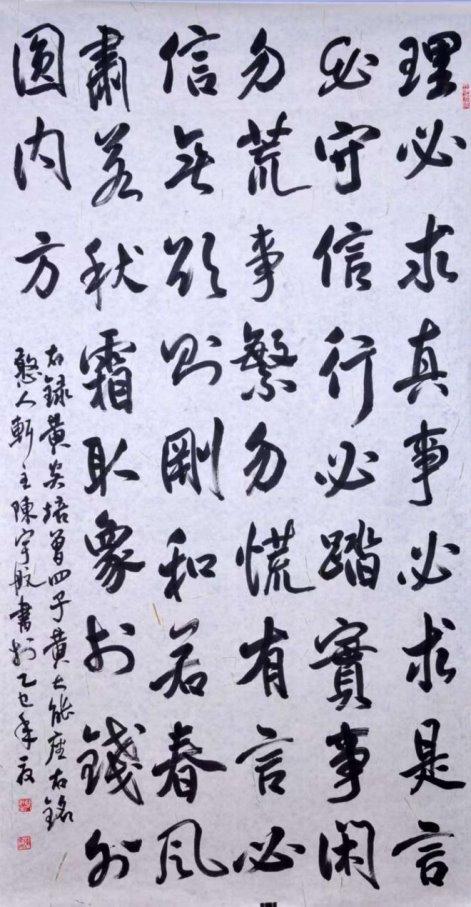 理必求真事必求是言
必守信行必踏實事闲
勿荒事繁勿慌有言必
信无欲则剛和若春风
肅若秋霜取象於錢外
圆内方
右録黄炎培曾四子黄大能座右銘
憨人軒主陳宇航書於乙巳年